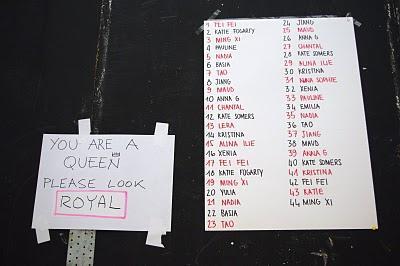 1 FEI FEI
2 KATIE FOGARTY
3 MING XI
4 PAULINE
5 NADIA
6 BASIA
7 TAO
8 JIANG
9 MAUD
10 ANNA G
11 CHANTAL
12 KATE SOMERS
13 LERA
14 KRISTINA
15 ALINA ILIE
16 XENIA
17 FEI FEI
18 KATIE FOGARTY
19 MING XI
20 YULIA
21 NADIA
22 BASIA
23 TAO
24 JIANG
25 MAUD
26 ANNA G
27 CHANTAL
28 KATE SOMERS
29 ALINA ILIE
30 KRISTINA
31 ANNA SOPHIE
32 XENIA
33 PAULINE
34 EMILIA
35 NADIA
36 TAO
37 JIANG
38 MAUD
39 ANNA G
40 KATE SOMERS
41 KRISTINA
42 FEI FEI
43 KATIE
44 MING XI
YOU ARE A
QUEEN
PLEASE LOOK
ROYAL